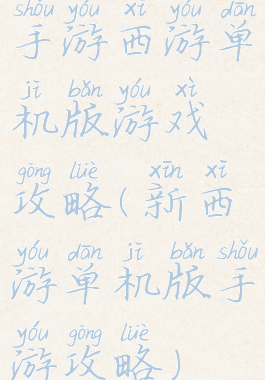 shǒu yóu xī yóu dān
手游西游单
jī bǎn yóu xì
机版游戏
gōng lüè xīn xī
攻略(新西
yóu dān jī bǎn shǒu
游单机版手
yóu gōng lüè
游攻略)